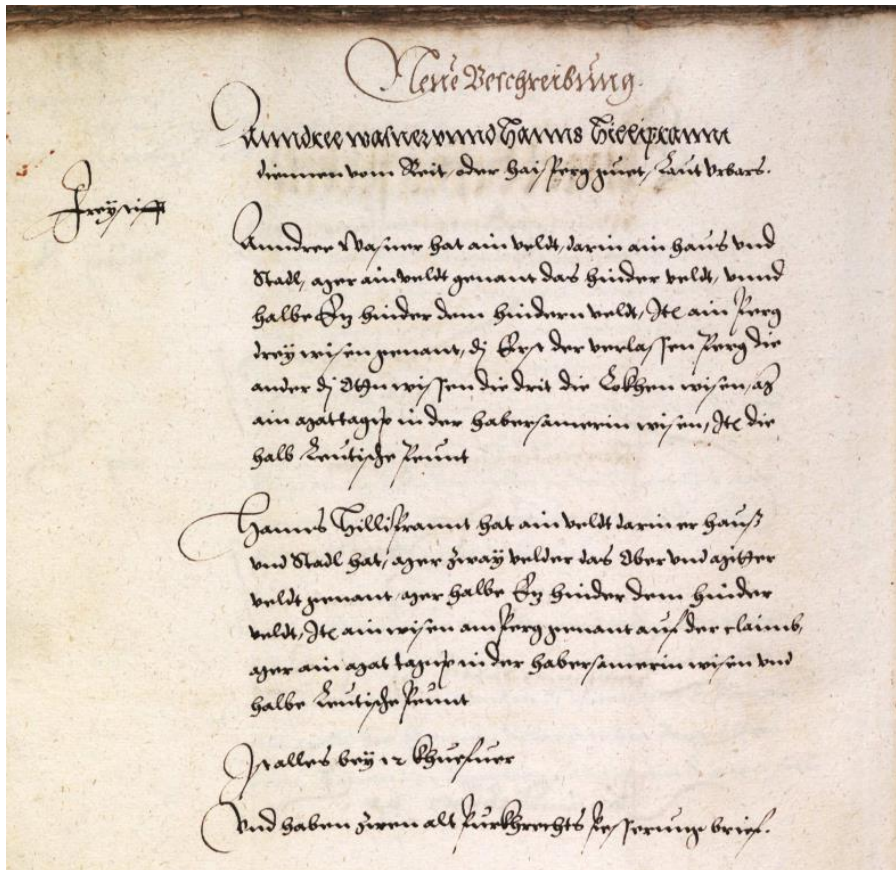 Neue Beschreibung.
Anndree Wasner unnd Hanns Hilliprannt
diennen vom Reit, oder haisperg guet, Laut Urbars.
Freystifft
Anndree Wasner hat ain veldt, darin ain haus und
Stadl, mer ain veldt genant das hinder veldt, unnd
halbe Ez hinder dem hindern veldt, Ite ain Perg
drey wisen genant, dj Erst der verlassen Perg die
ander dj wissen die drit die Lokhen wisen, mer
ain matt in der habersamerin wisen, Ite die
halb Leutische Peunt
Hanns Hilliprannt hat ain veldt darin er hauß
und Stadl hat, mer zway velder das Ober und miter
veldt genant, mer halbe Ez hinder dem hinder
veldt, Ite ain wisen am Perg genant auf der claimb,
mer ain mat in der habersamerin wisen und
halbe Leutische Peunt
Ist alles bey 12 khuefuer
Und haben zwen alt Purkhrechts Pesserung brief.